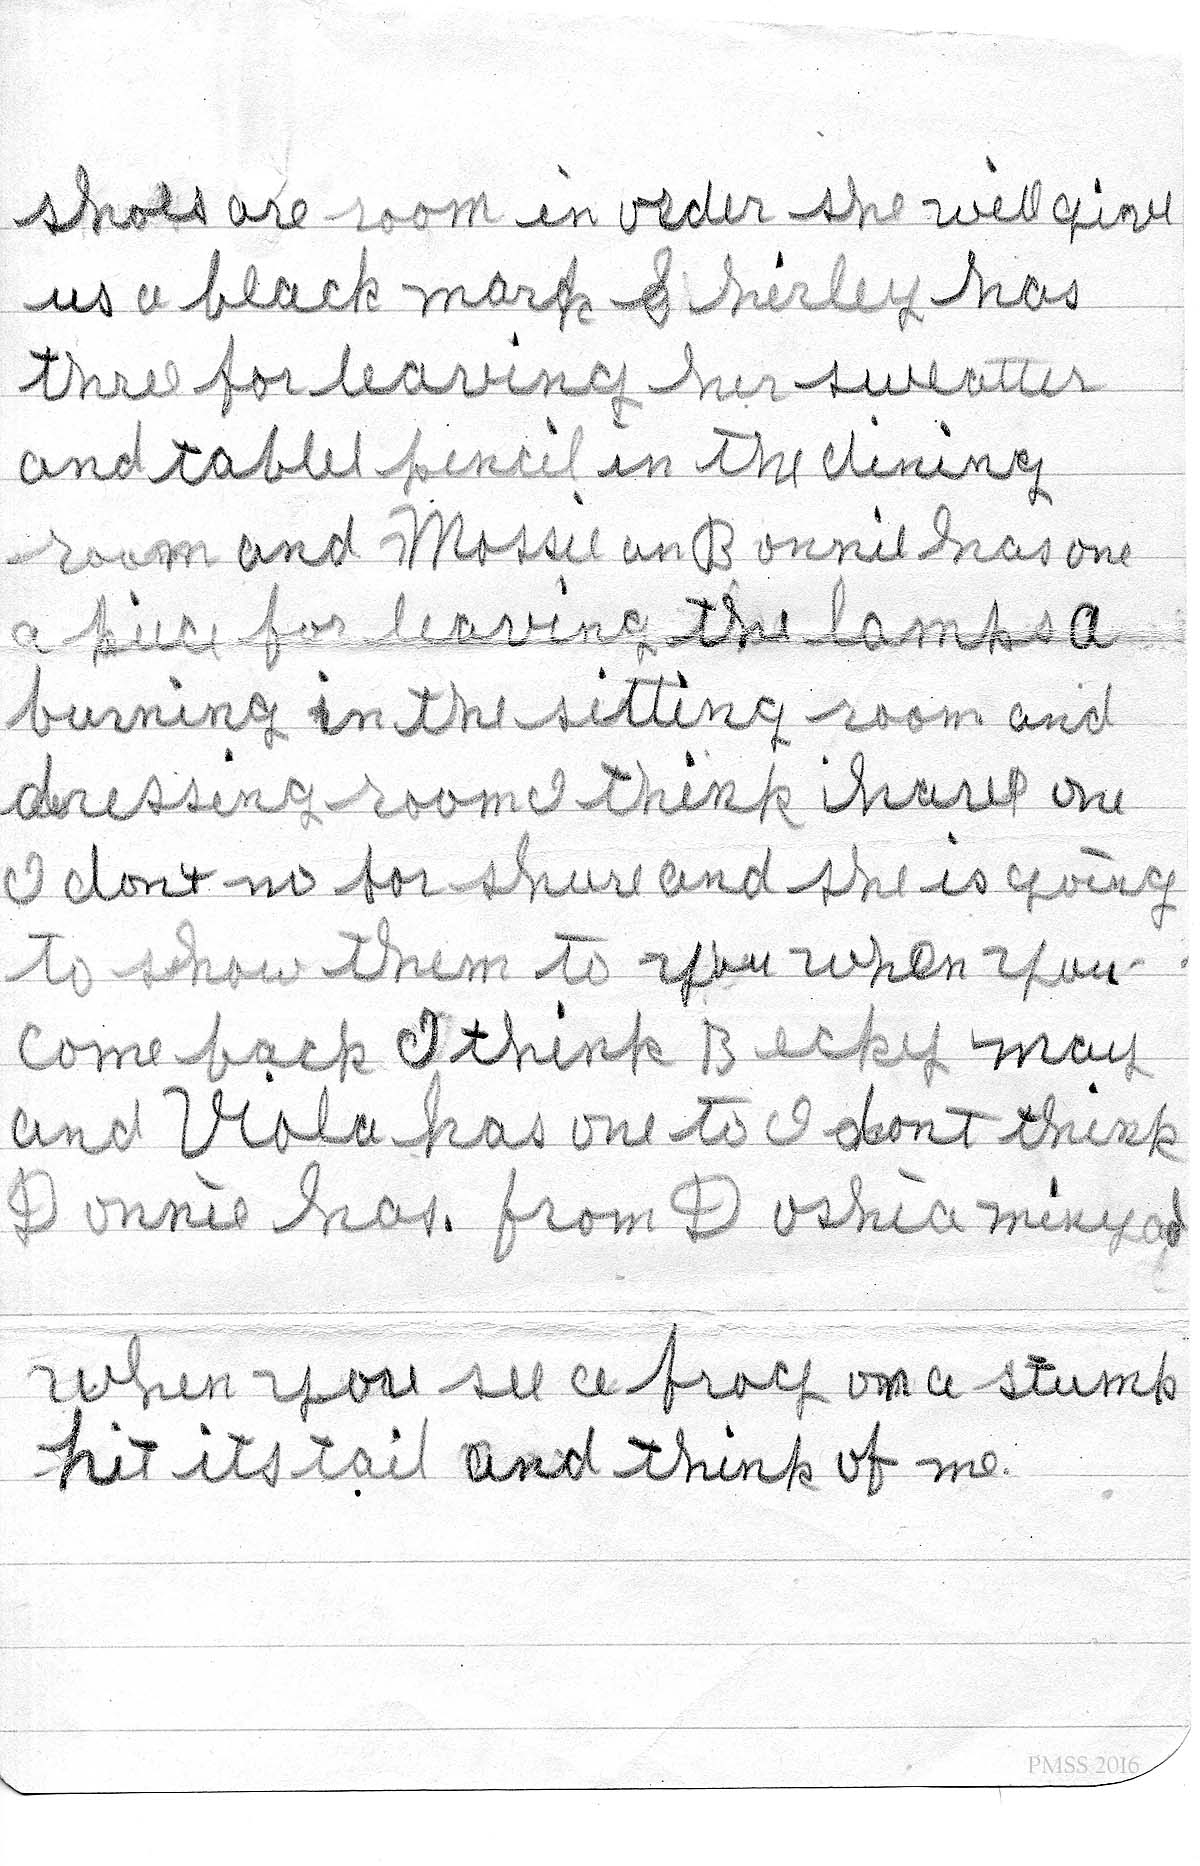 shoes are room in order she will give
us a black mark Shirley has
three for leaving her sweatter
and tablel pencil in the dining
room and Mossie an Bonnie has one
a piece for leaving the lamps a
burning in the sitting room and
dressing room I think i have one
I dont no for shure and she is going
to show them to you when you
come back I think Becky may
and Viola has one to I dont think
Donnie has. from Doshia minyad
when you see a frog on a stump
hit its tail and think of me.
PMSS 2016